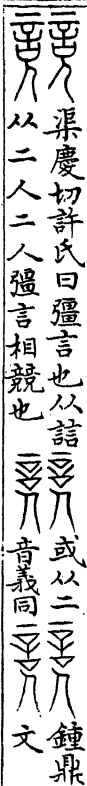 競
渠慶切許氏曰彊言也从誩
从二人二人彊言相競也
或从二
音義同
鍾鼎
文